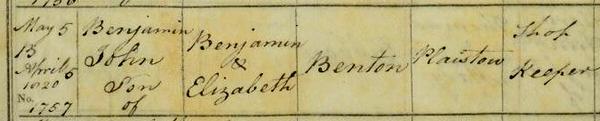 May 5
B
April 5
1820
No.
1757
Benjamin
John
Son
of
Benjamin
&
Elizabeth
Benton
Plaistow
Shop
Keeper